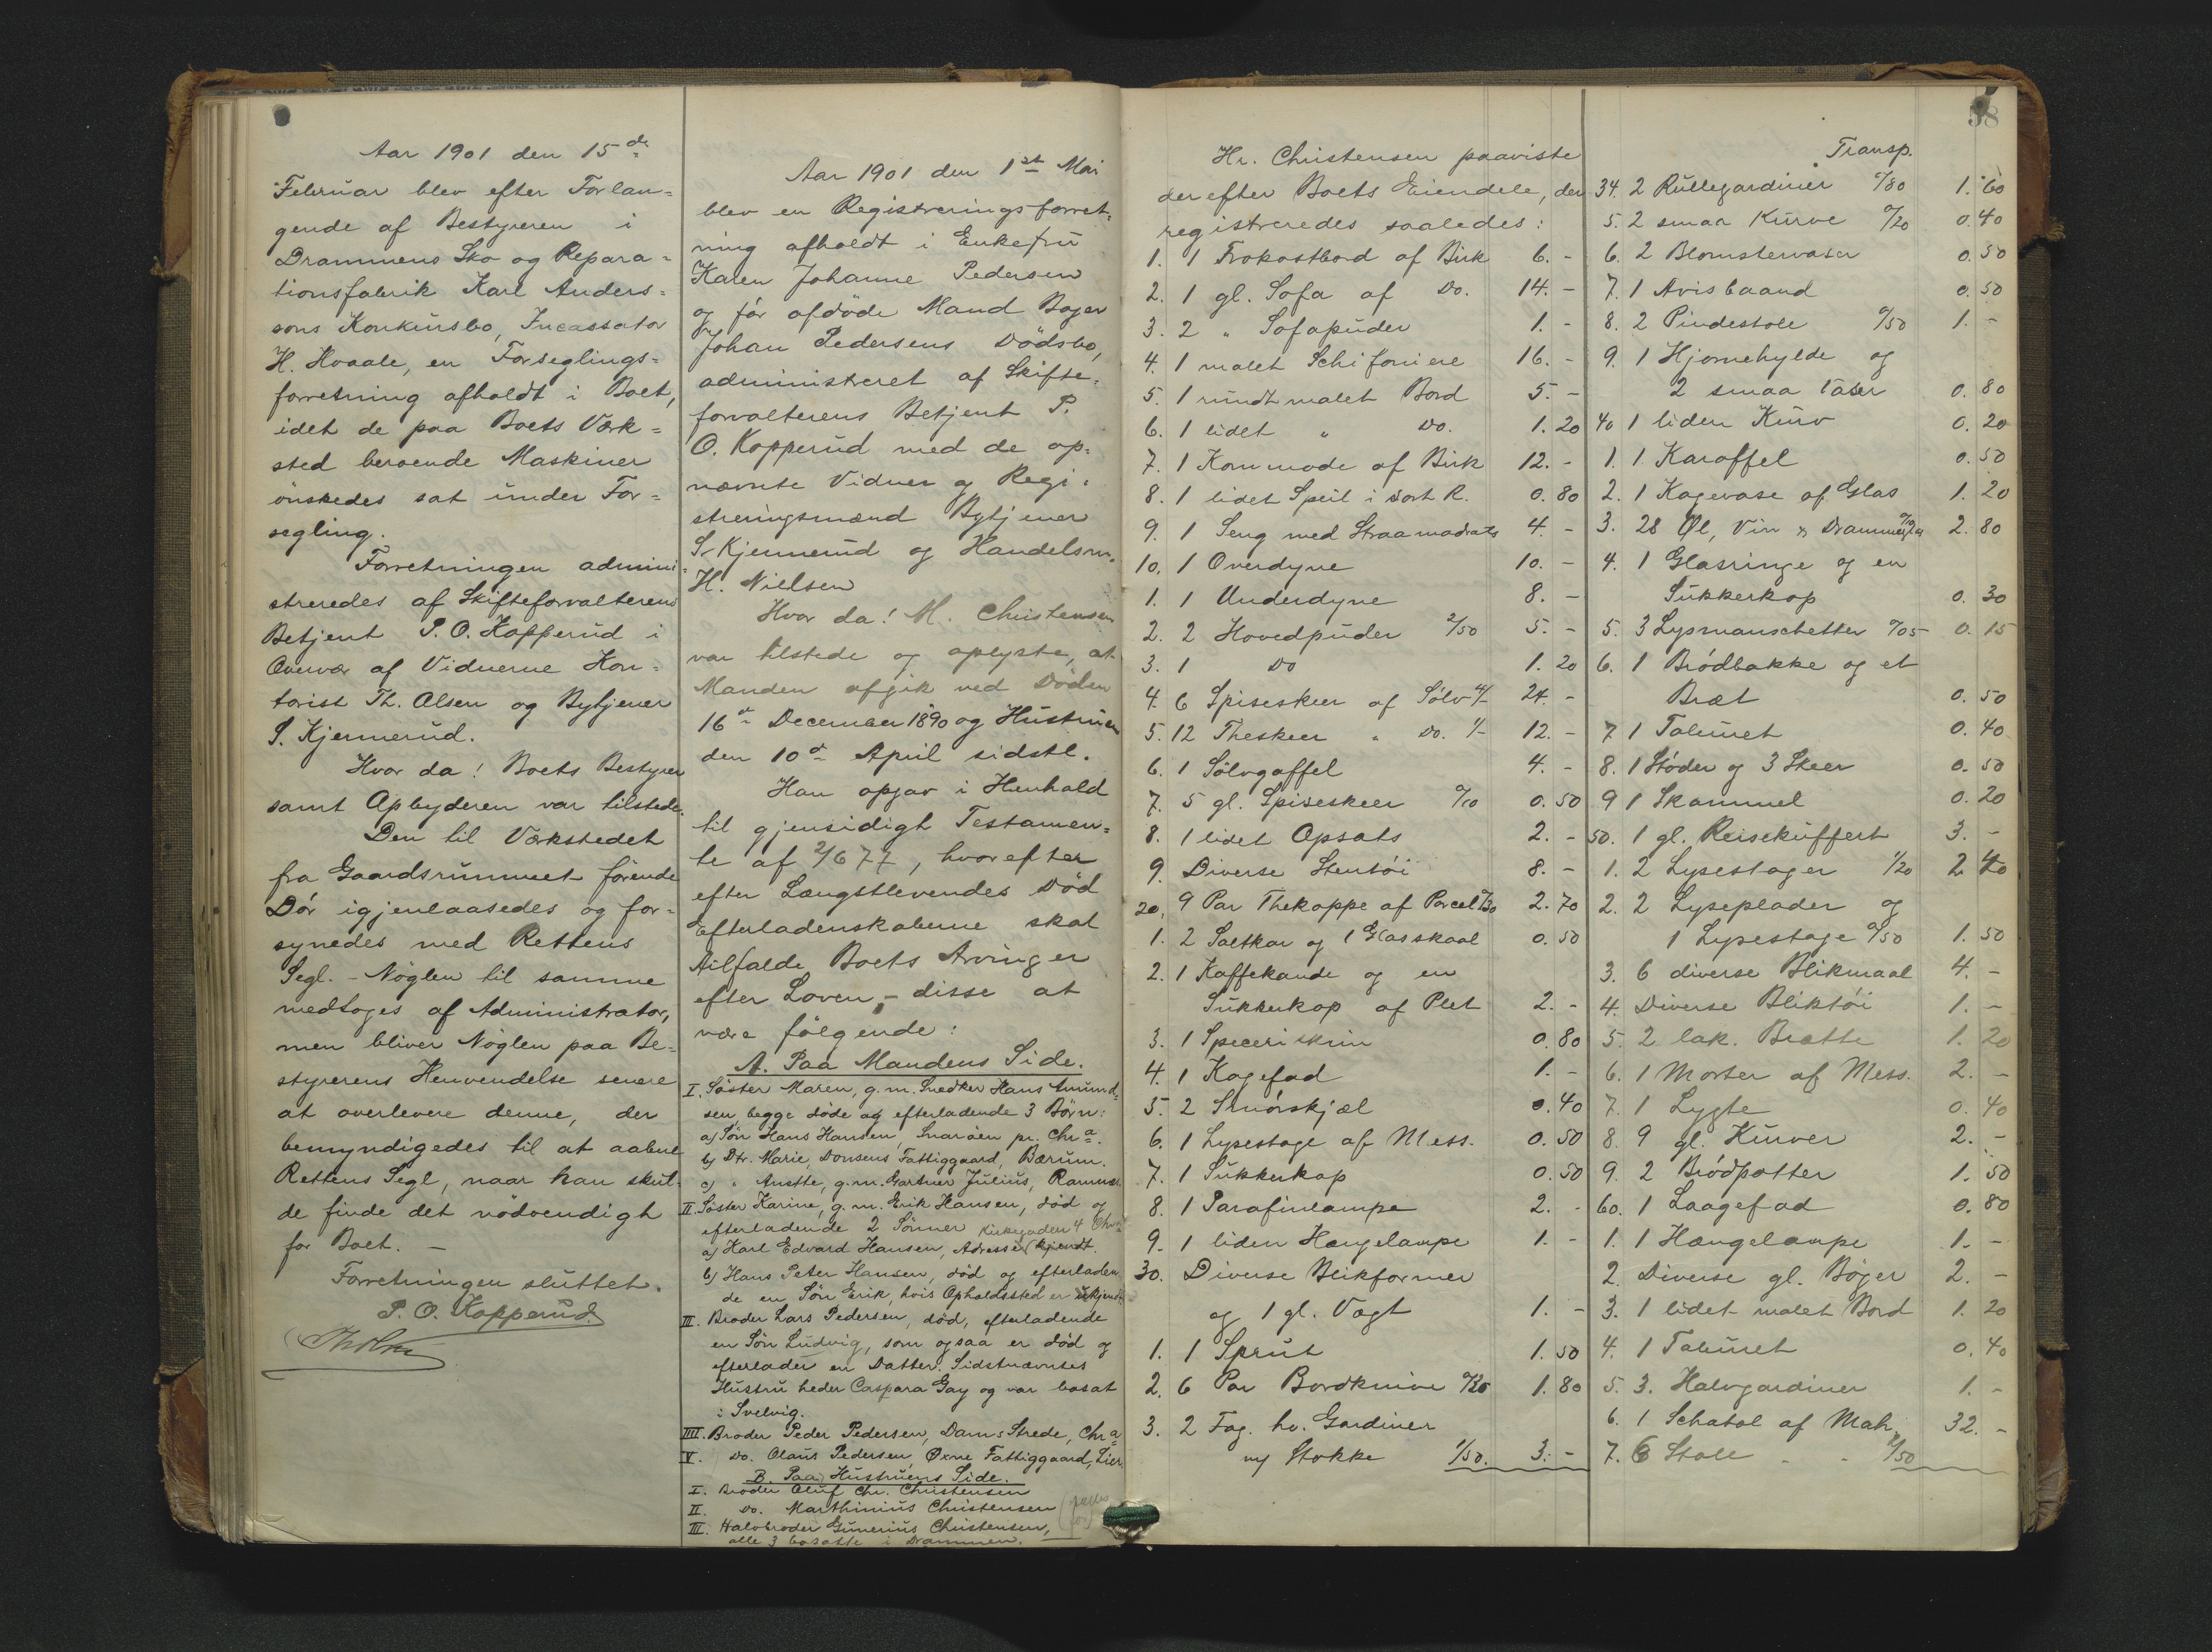 Aar 1901 den 15de
Februar blev efter Forlan=
gende af Bestyreren i
Drammens Sko og Repara=
tionsfabrik Karl Anders=
sons Konkursbo, Incassator
H. Hvaale, en Forseglings=
forretning afholdt i Boet,
idet de paa Boets Værk=
sted beroende Maskiner
ønskedes sat under For=
segling.
Forretningen admini=
streredes af Skifteforvalterens
Betjent P. O. Kopperud i
Overvær af Vidnerne Kon=
torist Th. Olsen og Bytjener
S. Kjennerud.
Hvor da! Boets Bestyrer
samt Opbyderen var tilstede.
Den til Værkstedet
fra Gaardsrummet førende
Dør igjenlaasedes og for=
synedes med Rettens
Segl. - Nøglen til samme
medtoges af Administrator,
men bliver Nøglen paa Be=
styrerens Henvendelse senere
at overlevere denne, der
bemyndigedes til at aabne
Rettens Segl, naar han skul=
de finde det nødvendigt
for Boet. -
Forretningen sluttet.
P. O. Kopperud.
Aar 1901 den 1st Mai
blev en Registreringsforret=
ning afholdt i Enkefru
Karen Johanne Pedersen
og før afdøde Mand Bager
Johan Pedersens Dødsbo,
administreret af Skifte=
forvalterens Betjent P.
O. Kopperud med de op=
nævnte Vidner og Regi=
streringsmænd Bytjener
S. Kjennerud og Handelsm.
H. Nielsen
Hvor da! M. Christensen
var tilstede og oplyste, at
Manden afgik ved Døden
16de December 1890 og Hustruen
den 10de April sidstl.
Han opgav i Henhold
til gjensidigt Testamen=
te af 2/6 77, hvorefter
efter Længstlevendes Død
Efterladenskaberne skal
tilfalde Boets Arvinger
efter Loven, - disse at
være følgende:
A. Paa Mandens Side.
I. Søster Maren, g. m. Snedker Hans Amund=
sen, begge døde og efterladende 3 Børn:
a) Søn Hans Hansen, Snarøen pr. Chra.
b) Dtr. Marie, Donsens Fattiggaard, Bærum.
c) " Anette, g. m. Gartner Julius,
II. Søster Karine, g. m. Erik Hansen, død og
efterladende 2 Sønner Kirkegaden 4
a) Karl Edvard Hansen, Adresse kjendt.
b) Hans Peter Hansen, død og efterladen
de en Søn Erik, hvis Opholdssted er ukjendt.
III. Broder Lars Pedersen, død, efterladende
en Søn Ludvig, som ogsaa er død og
efterlader en Datter. Sidstnævntes
Hustru heder Caspara Gay og var bosat
i Svelvig.
IIII. Broder Peder Pedersen, Dams Strede, Chra
V. Do. Olaus Pedersen, Fattiggaard, Lier.
B. Paa Hustruens Side.
I. Broder Oluf Chr. Christensen
II. Do. Marthinius Christensen
III. Halvbroder Gunerius Christensen,
alle 3 bosatte i Drammen.
Hr. Christensen paaviste
derefter Boets Eiendele, der
registreredes saaledes:
1. 1 Frokostbord af Birk 6. -
2. 1 gl. Sofa af Do. 14. -
3. 2 " Sofapuder 1. -
4. 1 malet Schifoniere 16. -
5. 1 rundt malet Bord 5. -
6. 1 lidet " Do. 1. 20
7. 1 Kommode af Birk 12. -
8. 1 lidet Speil i sort R. 0. 80
9. 1 Seng med Straamadrats 4. -
10. 1 Overdyne 10. -
1. 1 Underdyne 8. -
2. 2 Hovedpuder 2/50 5. -
3. 1 Do 1. 20
4. 6 Spiseskeer af Sølv 4/- 24. -
5. 12 Theskeer " Do. 1/- 12. -
6. 1 Sølvgaffel 4. -
7. 5 gl. Spiseskeer 0/10 0. 50
8. 1 lidet Opsats 2. -
9. Diverse Stentøi 8. -
20. 9 Par Thekoppe af Porcel. 0/30 2. 70
1. 2 Saltkar og 1 Glasskaal 0. 50
2. 1 Kaffekande og en
Sukkerkop af Plet 2. -
3. 1 Speceriskrin 0. 80
4. 1 Kagefad 1. -
5. 2 Smørskjæl 0. 40
6. 1 Lysestage af Mess. 0. 50
7. 1 Sukkerkop 0. 50
8. 1 Parafinlampe 2. -
9. 1 liden Hængelampe 1. -
30. Diverse Blikformer
og 1 gl. Vægt 1. -
1. 1 Sprut 1. 50
2. 6 Par Bordknive 0/30 1. 80
3. 2 Fag. hv. Gardiner
m/ Stokke 1/50. 3. -
58
Transp.
34. 2 Rullegardiner 0/80 1. 60
5. 2 smaa Kurve 0/20 0. 40
6. 2 Blomstervaser 0. 50
7. 1 Avisbaand 0. 50
8. 2 Pindestole 0/50 1. -
9. 1 Hjørnehylde og
2 smaa Vaser 0. 80
40 1 liden Kurv 0. 20
1. 1 Karaffel 0. 50
2. 1 Kagevase af Glas 1. 20
3. 28 Øl, Vin & 2. 80
4. 1 Glasringe og en
Sukkerkop 0. 30
5. 3 Lysmanschetter 0/05 0. 15
6. 1 Brødbakke og et
Bræt 0. 50
7. 1 Taburet 0. 40
8. 1 Støder og 3 Skeer 0. 50
9 1 Skammel 0. 20
50. 1 gl. Reisekuffert 3. -
1. 2 Lysestager 1/20 2 40
2. 2 Lyseplader og
1 Lysestage 0/50 1. 50
3. 6 diverse Blikmaal 4. -
4. Diverse Bliktøi 1. -
5. 2 lak. Brætte 1. 20
6. 1 Morter af Mess. 2. -
7. 1 Lygte 0. 40
8. 9 gl. Kurver 2. -
9. 2 Brødpotter 1. 50
60. 1 Laagefad 0. 80
1. 1 Hængelampe 1. -
2. Diverse gl. Bøger 2. -
3. 1 lidet malet Bord 1. 20
4. 1 Taburet 0. 40
5. 3. Halvgardiner 1. -
6. 1 Schatol af Mah. 32. -
7. 6 Stole " "